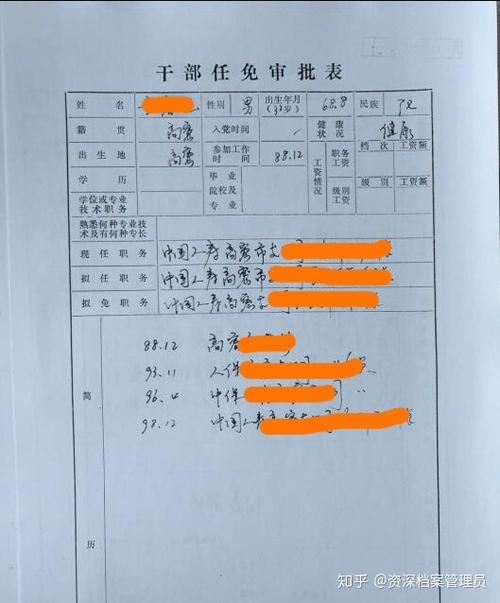 干部任免审批表
姓名 性别 男 出生年月（32岁） 68.8 民族 汉
籍贯 高密 入党时间 健康状况 健康
出生地 高密 参加工作时间 88.12 工资情况 职务工资 档次 工资额
学历 毕业院校及专业 级别工资 级别 工资额
学位或专业技术职务
熟悉何种专业技术及有何种专长
现任职务 中国人寿高密市支
拟任职务 中国人寿高密市支
拟免职务 中国人寿高密支
简历
88.12 高密
93.11 人保
96.4 中保 〃
98.12 中国人寿高密支
知乎 @资深档案管理员